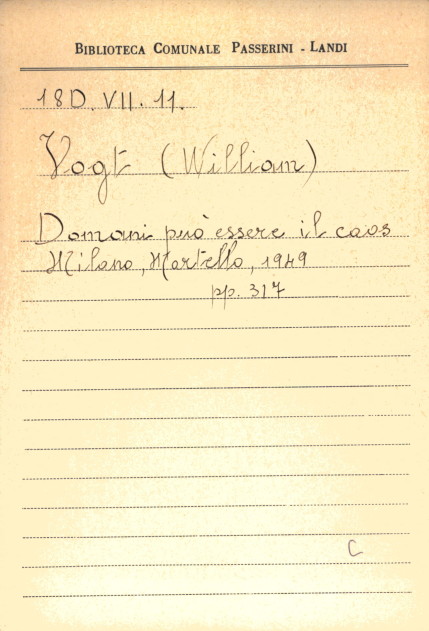 BIBLIOTECA COMUNALE PASSERINI - LANDI
18D. VII. 11.
Vogt (William)
Domani può essere il caos
Milano, Martello, 1949
pp. 317
C